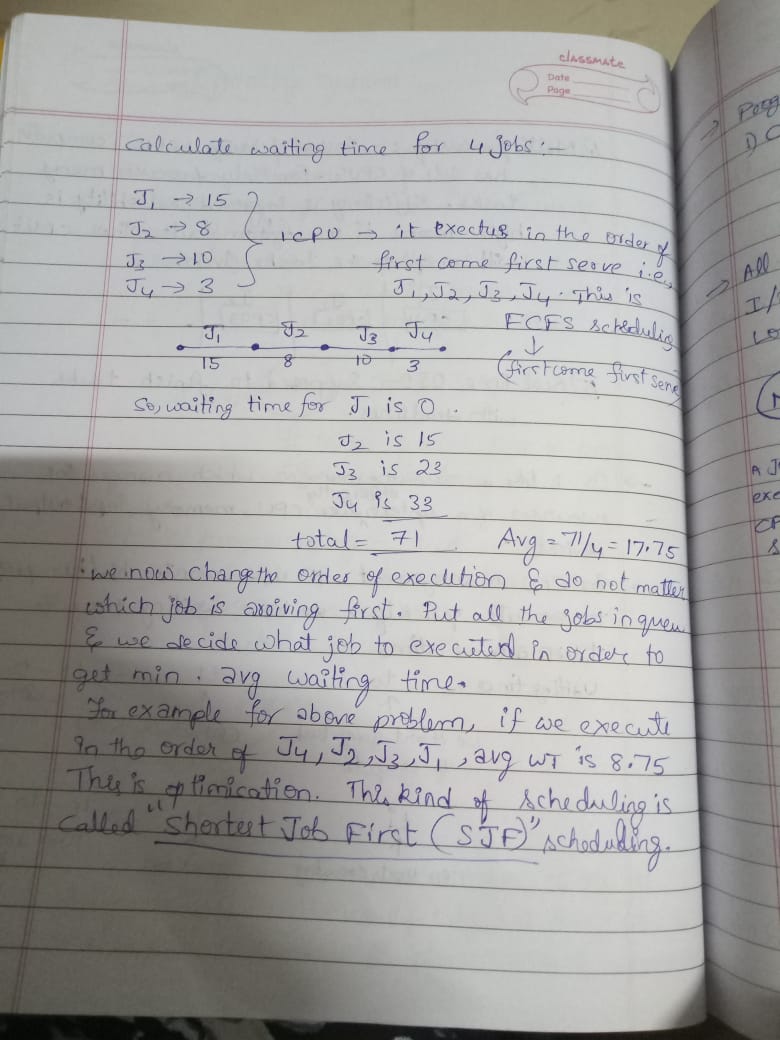 classmate
Date
Page
Calculate waiting time for 4 jobs :-
J1 → 15
J2 → 8
J3 → 10
J4 → 3
1 CPU → it exectus in the order of
first come first serve i.e,
J1, J2, J3, J4. This is
FCFS scheduling
↓
(first come first serve
J1 J2 J3 J4
15 8 10 3
So, waiting time for J1 is 0.
J2 is 15
J3 is 23
J4 is 33
total = 71 Avg = 71/4 = 17.75
: we now change the order of execution & do not matter
which job is arriving first. Put all the jobs in queu
& we decide what job to executed in order to
get min. avg waiting time.
For example for above problem, if we execute
in the order of J4, J2, J3, J1, avg WT is 8.75
This is optimication. This kind of scheduling is
called "Shortest Job First (SJF)" scheduling.
→
1) C
→ All
I/
A J
exe
CP
S